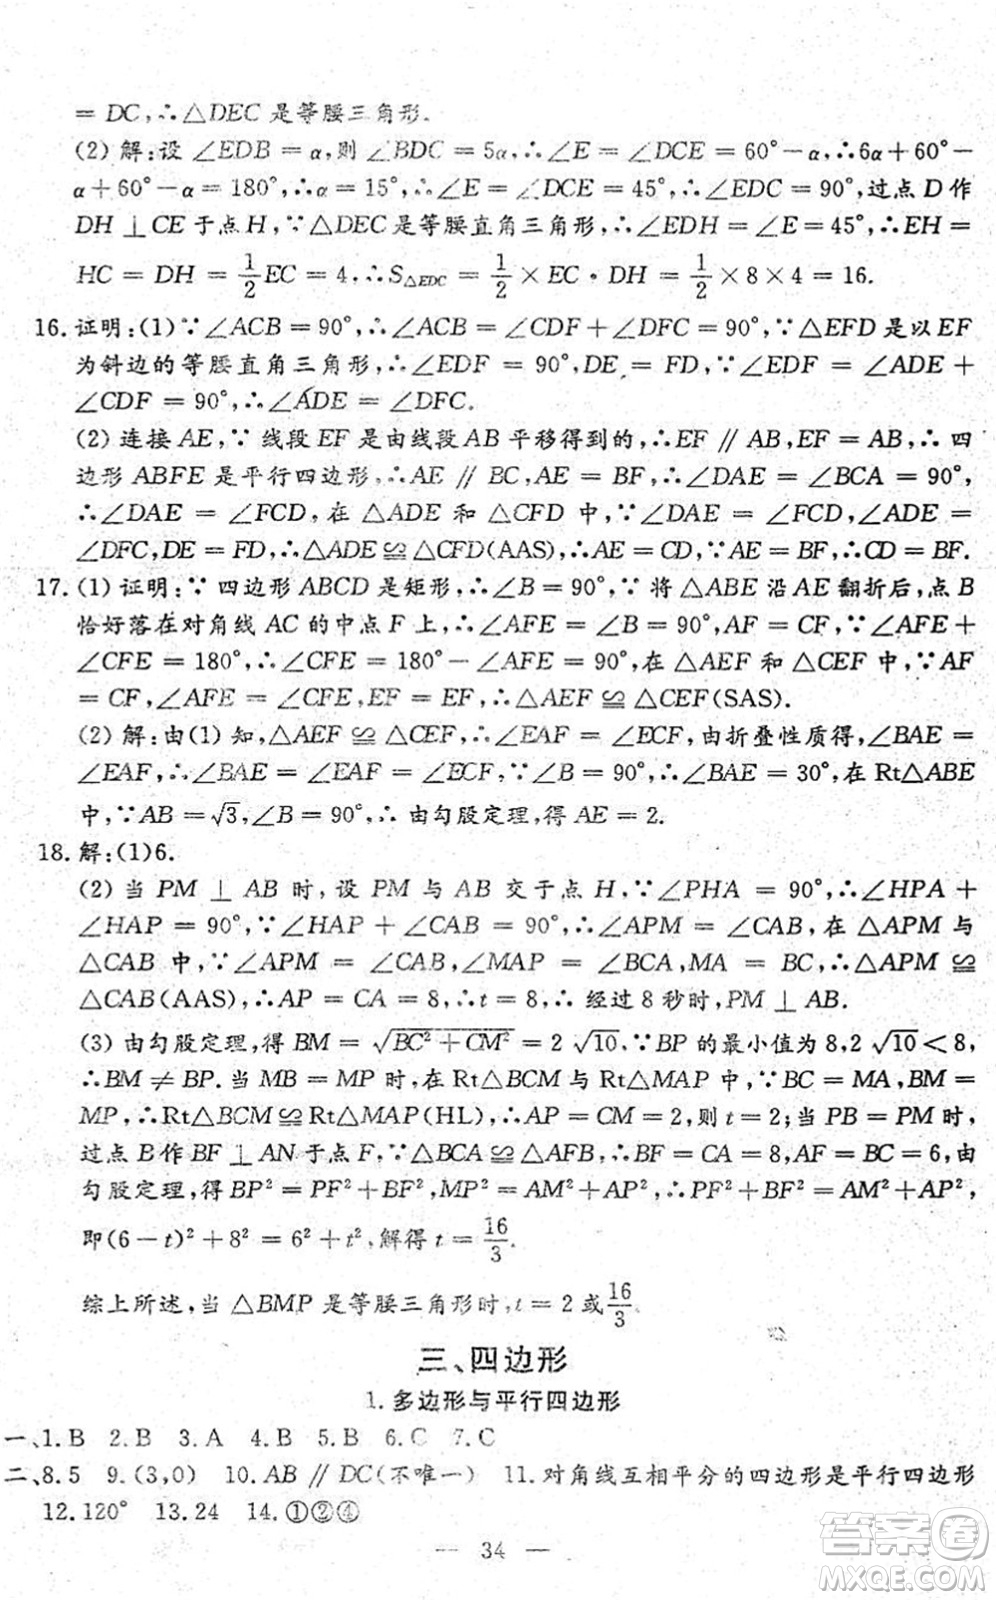 = DC,∴△DEC 是等腰三角形.
(2) 解:设 ∠EDB = α,则 ∠BDC = 5α,∴∠E = ∠DCE = 60°-α,∴6α+60°-
α+60°-α = 180°,∴α = 15°,∴∠E = ∠DCE = 45°,∴∠EDC = 90°,过点 D 作
DH ⊥ CE 于点 H,∵△DEC 是等腰直角三角形,∴∠EDH = ∠E = 45°,∴EH =
HC = DH = 1/2 EC = 4,∴S△EDC = 1/2 × EC · DH = 1/2 × 8 × 4 = 16.
16. 证明:(1)∵∠ACB = 90°,∴∠ACB = ∠CDF+∠DFC = 90°,∵△EFD 是以 EF
为斜边的等腰直角三角形,∴∠EDF = 90°,DE = FD,∵∠EDF = ∠ADE +
∠CDF = 90°,∴∠ADE = ∠DFC.
(2) 连接 AE,∵ 线段 EF 是由线段 AB 平移得到的,∴EF ∥ AB,EF = AB,∴ 四
边形 ABFE 是平行四边形,∴AE ∥ BC,AE = BF,∴∠DAE = ∠BCA = 90°,
∴∠DAE = ∠FCD,在 △ADE 和 △CFD 中,∵∠DAE = ∠FCD,∠ADE =
∠DFC,DE = FD,∴△ADE ≌ △CFD(AAS),∴AE = CD,∵AE = BF,∴CD = BF.
17. (1) 证明:∵ 四边形 ABCD 是矩形,∴∠B = 90°,∵ 将 △ABE 沿 AE 翻折后,点 B
恰好落在对角线 AC 的中点 F 上,∴∠AFE = ∠B = 90°,AF = CF,∵∠AFE +
∠CFE = 180°,∴∠CFE = 180°-∠AFE = 90°,在 △AEF 和 △CEF 中,∵AF
= CF,∠AFE = ∠CFE,EF = EF,∴△AEF ≌ △CEF(SAS).
(2) 解:由(1) 知,△AEF ≌ △CEF,∴∠EAF = ∠ECF,由折叠性质得,∠BAE =
∠EAF,∴∠BAE = ∠EAF = ∠ECF,∵∠B = 90°,∴∠BAE = 30°,在 Rt△ABE
中,∵AB = √3,∠B = 90°,∴ 由勾股定理,得 AE = 2.
18. 解:(1)6.
(2) 当 PM ⊥ AB 时,设 PM 与 AB 交于点 H,∵∠PHA = 90°,∴∠HPA +
∠HAP = 90°,∵∠HAP + ∠CAB = 90°,∴∠APM = ∠CAB,在 △APM 与
△CAB 中,∵∠APM = ∠CAB,∠MAP = ∠BCA,MA = BC,∴△APM ≌
△CAB(AAS),∴AP = CA = 8,∴t = 8,∴ 经过 8 秒时,PM ⊥ AB.
(3) 由勾股定理,得 BM = √(BC²+CM²) = 2√10,∵BP 的最小值为 8,2√10 < 8,
∴BM ≠ BP. 当 MB = MP 时,在 Rt△BCM 与 Rt△MAP 中,∵BC = MA,BM =
MP,∴Rt△BCM ≌ Rt△MAP(HL),∴AP = CM = 2,则 t = 2;当 PB = PM 时,
过点 B 作 BF ⊥ AN 于点 F,∵△BCA ≌ △AFB,∴BF = CA = 8,AF = BC = 6,由
勾股定理,得 BP² = PF²+BF²,MP² = AM²+AP²,∴PF²+BF² = AM²+AP²,
即(6-t)²+8² = 6²+t²,解得 t = 16/3.
综上所述,当 △BMP 是等腰三角形时,t = 2 或 16/3.
三、四边形
1.多边形与平行四边形
一、1.B 2.B 3.A 4.B 5.B 6.C 7.C
二、8.5 9.(3,0) 10. AB ∥ DC(不唯一) 11. 对角线互相平分的四边形是平行四边形
12.120° 13.24 14.①②④
— 34 —
答案卷
MXQE.COM